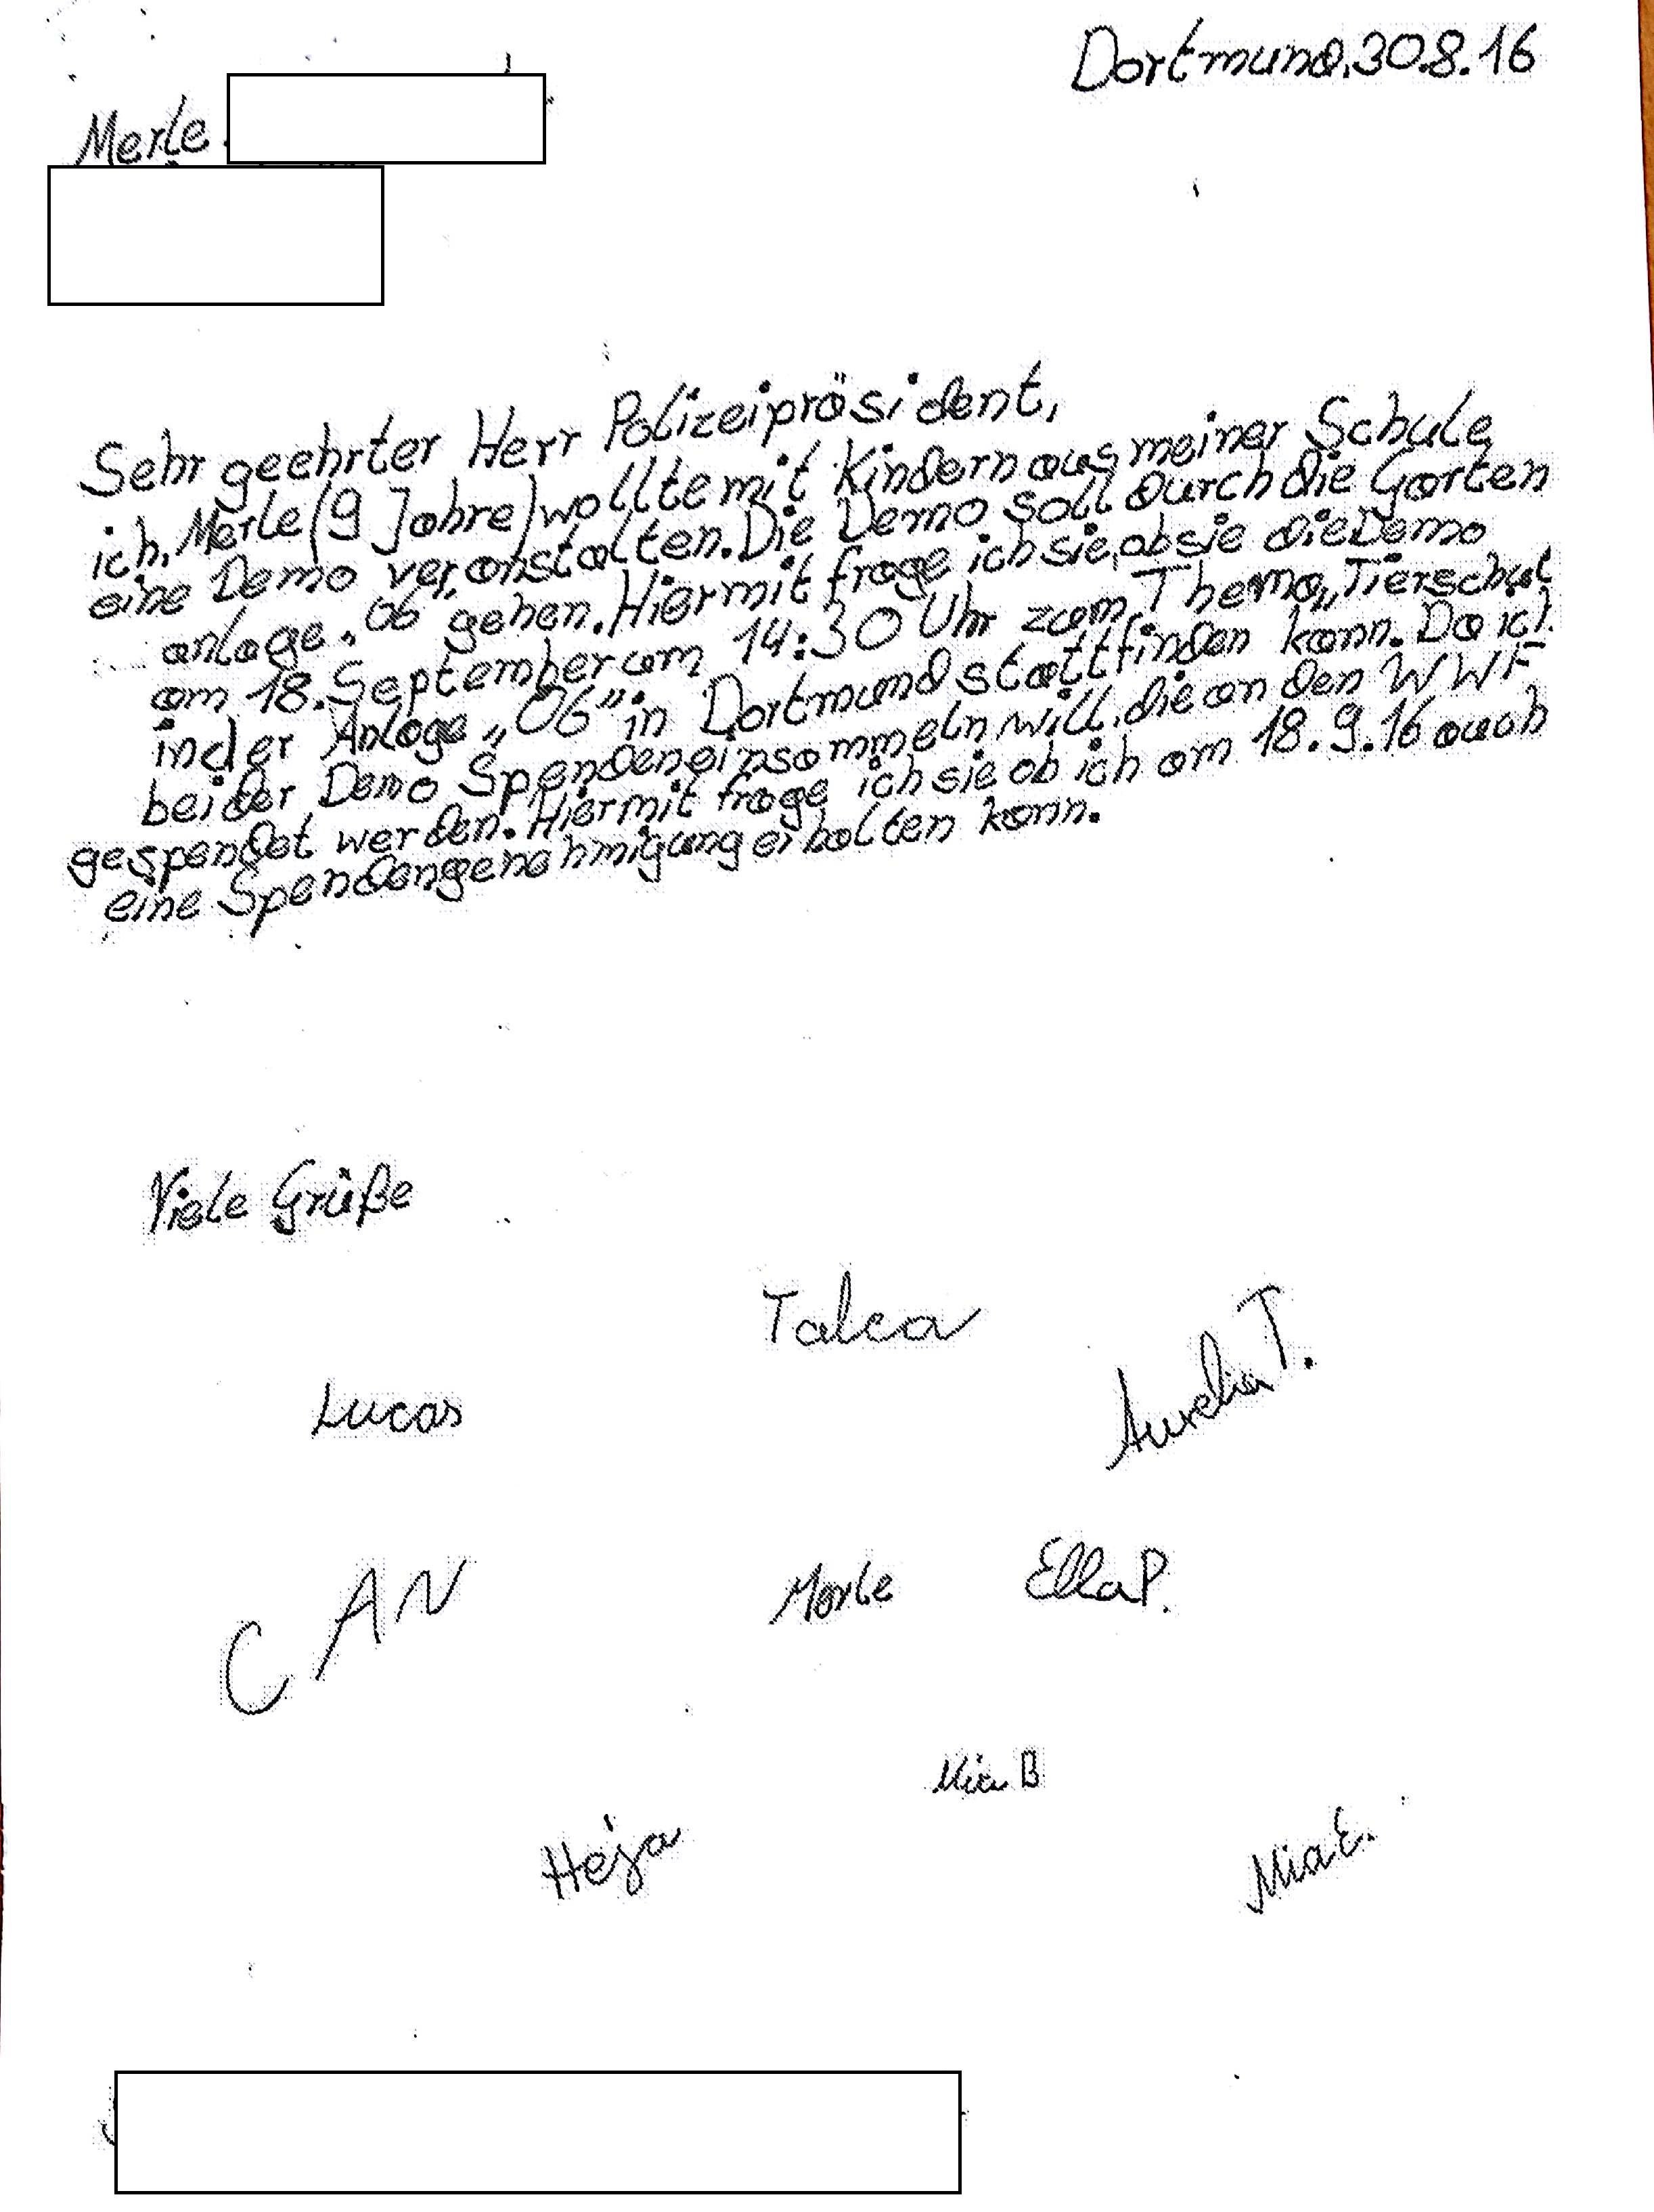 Dortmund, 30.8.16
Merle
Sehr geehrter Herr Polizeipräsident,
ich, Merle (9 Jahre) wollte mit Kindern aus meiner Schule
eine Demo veranstalten. Die Demo soll durch die Garten
anlage "06" gehen. Hiermit frage ich sie, ob sie die Demo
am 18. September um 14:30 Uhr zum Thema „Tierschut
in der Anlage „06" in Dortmund stattfinden kann. Da ich
bei der Demo Spenden einsammeln will, die an den WWF
gespendet werden. Hiermit frage ich sie ob ich am 18.9.16 auch
eine Spendengenehmigung erhalten kann.
Viele Grüße
Talea
Lucas
Aurelia T.
CAN
Merle
Ella P.
Mia B
Héja
Mia E.